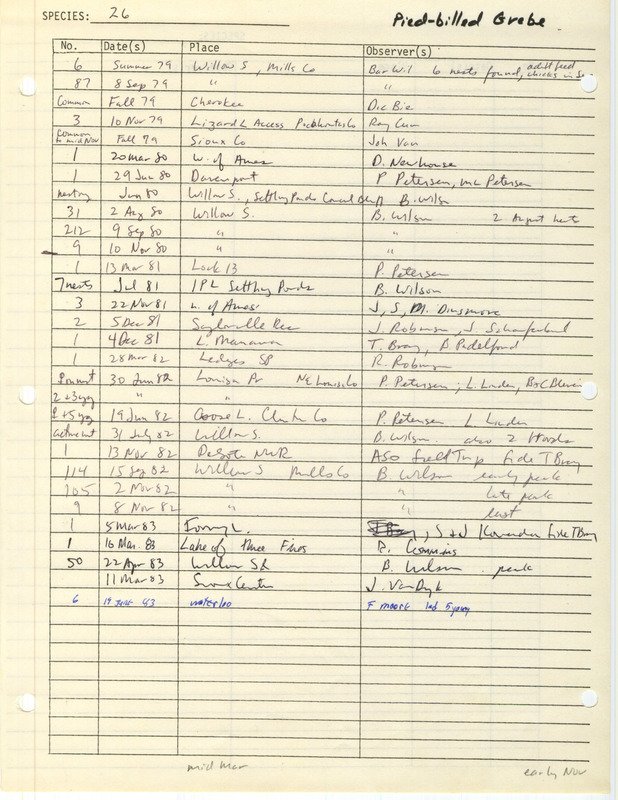 SPECIES: 26 Pied-billed Grebe
No. Date(s) Place Observer(s)
6 Summer 79 Willow S, Mills Co Bar Wil 6 nests found, adult feed chicks in
87 8 Sep 79 " "
Common Fall 79 Cherokee Dic Bie
3 10 Nov 79 Lizard L Access Pocahontas Co Ray Cum
Common to mid Nov Fall 79 Sioux Co Joh Van
1 20 Mar 80 W. of Ames D. Newhouse
1 29 Jun 80 Davenport P Petersen, Mc Petersen
nesting Jun 80 Willow S., Settling Ponds Council Bluff B. Wilson
31 2 Aug 80 Willow S. B. Wilson 2 August nests
212 9 Sep 80 " "
9 10 Nov 80 " "
1 13 Mar 81 Lock 13 P. Petersen
7 nests Jul 81 IPL Settling Ponds B. Wilson
3 22 Nov 81 W. of Ames J, S, M. Dinsmore
2 5 Dec 81 Saylorville Res J. Robinson, J
1 4 Dec 81 L. Manawa T. Bray, B. Padelford
1 28 Mar 82 Ledges SP R.
30 Jun 82 Louisa Pr NE Louisa Co P. Petersen; L. Linden, B&C Blevins
2 + 3 yg " "
2 + 5 yg 19 Jun 82 Goose L. Clinton Co P. Petersen L. Linden
active nest 31 July 82 Willow S. B. Wilson. also 2
1 13 Nov 82 DeSoto NWR ASO field Trip fide T Bray
114 15 Sep 82 Willow S Mills Co B. Wilson early peak
105 2 Nov 82 " " late peak
9 8 Nov 82 " " last
1 5 Mar 83 L. , S & J Kovanda fide T Bray
1 16 Mar. 83 Lake of Three Fires R. Cummins
50 22 Apr 83 Willow SL B. Wilson. peak
11 Mar 83 Sioux Center J. Van Dyk
6 19 June 83 Waterloo F Moore lad 5 young
mid Mar early Nov